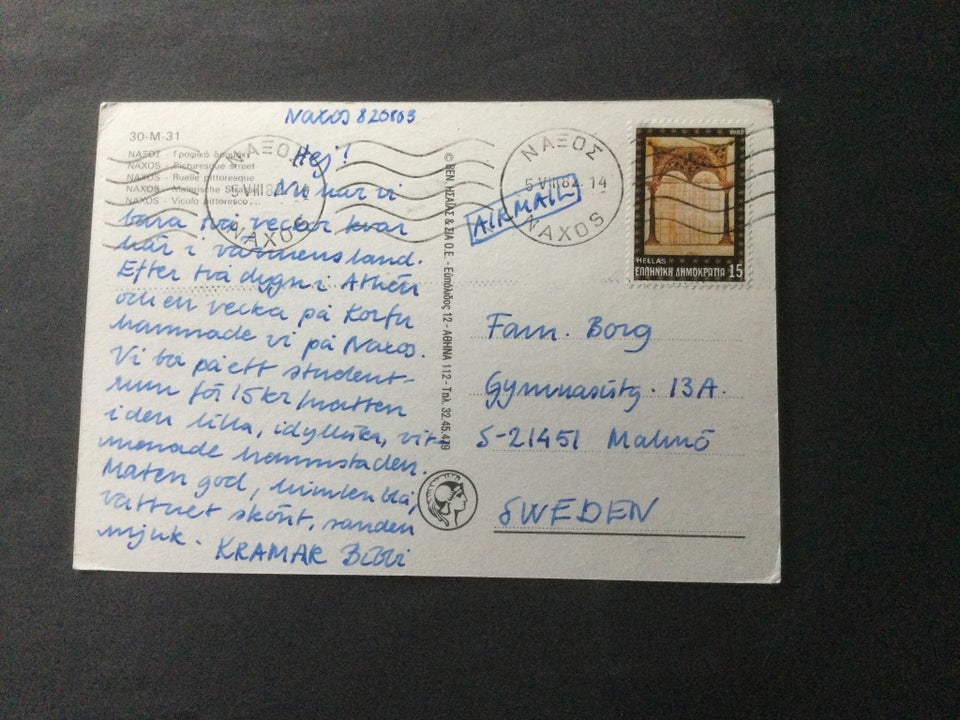 Naxos 820803
30-M-31
ΝΑΞΟΣ - Γραφικό
NAXOS - Picturesque street
NAXOS - Ruelle pittoresque
NAXOS - Malerische
NAXOS - Vicolo pittoresco
ΝΑΞΟΣ
5 VIII 82 14
NAXOS
Hej!
Nu har vi
bara två veckor kvar
här i värmens land.
Efter två dygn i Athén
och en vecka på Korfu
hamnade vi på Naxos.
Vi bo på ett student-
rum för 15 kr/natten
i den lilla, idylliska, vit-
menade hamnstaden.
Maten god, himlen blå,
vattnet skönt, sanden
mjuk. KRAMAR Bibbi
© ΒΕΝ. ΗΣΑΪΑΣ & ΣΙΑ Ο.Ε. - Εὐπόλιδος 12 - ΑΘΗΝΑ 112 - Τηλ. 32.45.479
ΝΑΞΟΣ
5 VIII 82. 14
NAXOS
AIRMAIL
1982
HELLAS
ΕΛΛΗΝΙΚΗ ΔΗΜΟΚΡΑΤΙΑ 15
Fam. Borg
Gymnasistg. 13A.
S-21451 Malmö
SWEDEN